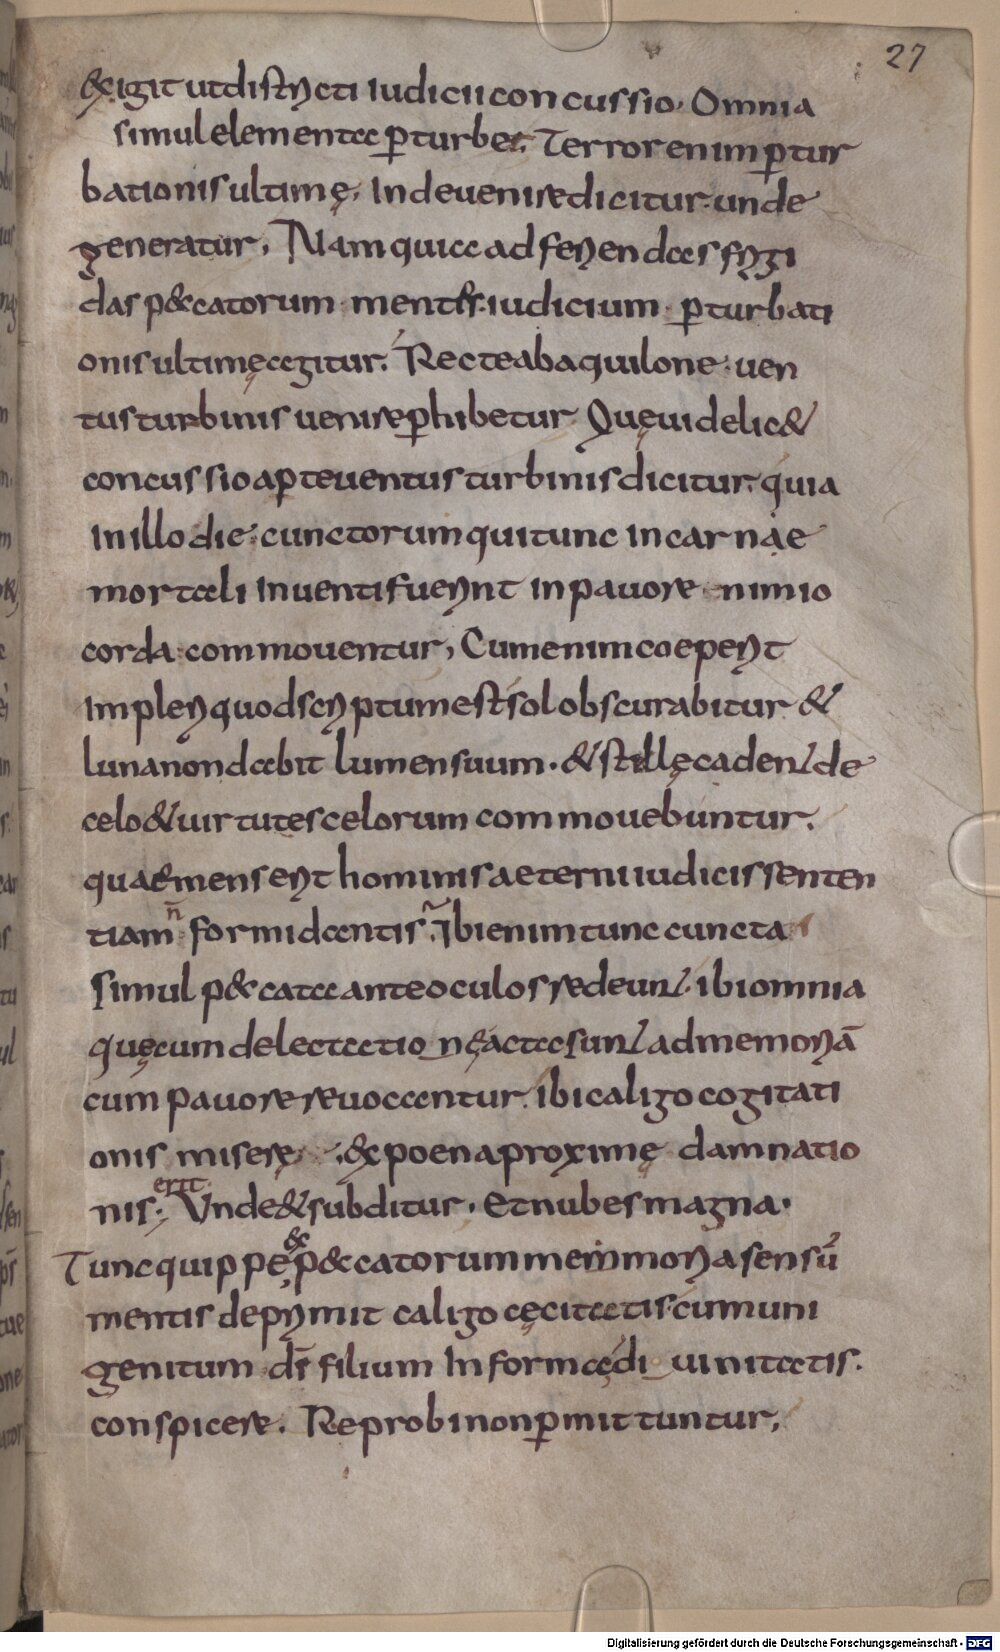 27
&xigit ut districti iudicii concussio. Omnia
simul elementa p̱turbet. Terror enim p̱tur
bationis ultimę. Inde venire dicitur. unde
generatur. Nam quia ad feriendas frigi
das p&catorum mentes. iudicium p̱turbati
onis ultimę agitur. Recte ab aquilone. uen
tus turbinis uenire p̱hibetur. Quę uidelic&
concussio ap̱te uentus turbinis dicitur. quia
In illo die. cunctorum qui tunc In carnae
mortali Inuenti fuerint In pauore nimio
corda commouentur, Cum enim coeperit
Impleri quod scriptum est sol obscurabitur &
luna non dabit lumen suum. & stellę cadent de
celo & uirtutes celorum commouebuntur.
quae mens erit hominis aeterni iudicis senten
tiam n̄ formidantis. Ibi enim tunc cuncta
simul p&cata ante oculos redeunt. ibi omnia
quę cum delectatione acta sunt ad memoriā
cum pauore reuocantur. ibi caligo cogitati
onis miserę. &x poena proximę damnatio
nis. erit Unde & subditur. Et nubes magna.
Tunc quippe & p&catorum memmoria sensū
mentis deprimit caligo cęcitatis. cum uni
genitum dī filium In forma di uinitatis.
conspicere. Reprobi non p̱mittuntur,
Digitalisierung gefördert durch die Deutsche Forschungsgemeinschaft - DFG